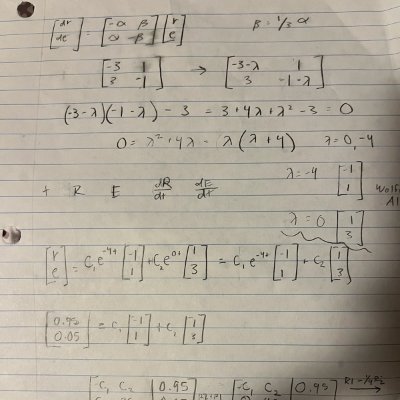 [dr; de] = [-α β; α -β] [r; e]    β = 1/3 α
[-3 1; 3 -1] → [-3-λ 1; 3 -1-λ]
(-3-λ)(-1-λ) - 3 = 3+4λ+λ² -3 = 0
0 = λ² +4λ = λ(λ+4)  λ = 0, -4
λ = -4 [-1; 1]
t R E dR/dt dE/dt
λ = 0 [1; 3]
[r; e] = C₁e^-4t [-1; 1] + C₂e^0t [1; 3] = C₁e^-4t [-1; 1] + C₂ [1; 3]
[0.95; 0.05] = C₁ [-1; 1] + C₂ [1; 3]
[-C₁ C₂ | 0.95] [-C₁ C₂ | 0.95] R1 - 1/4 R2 →